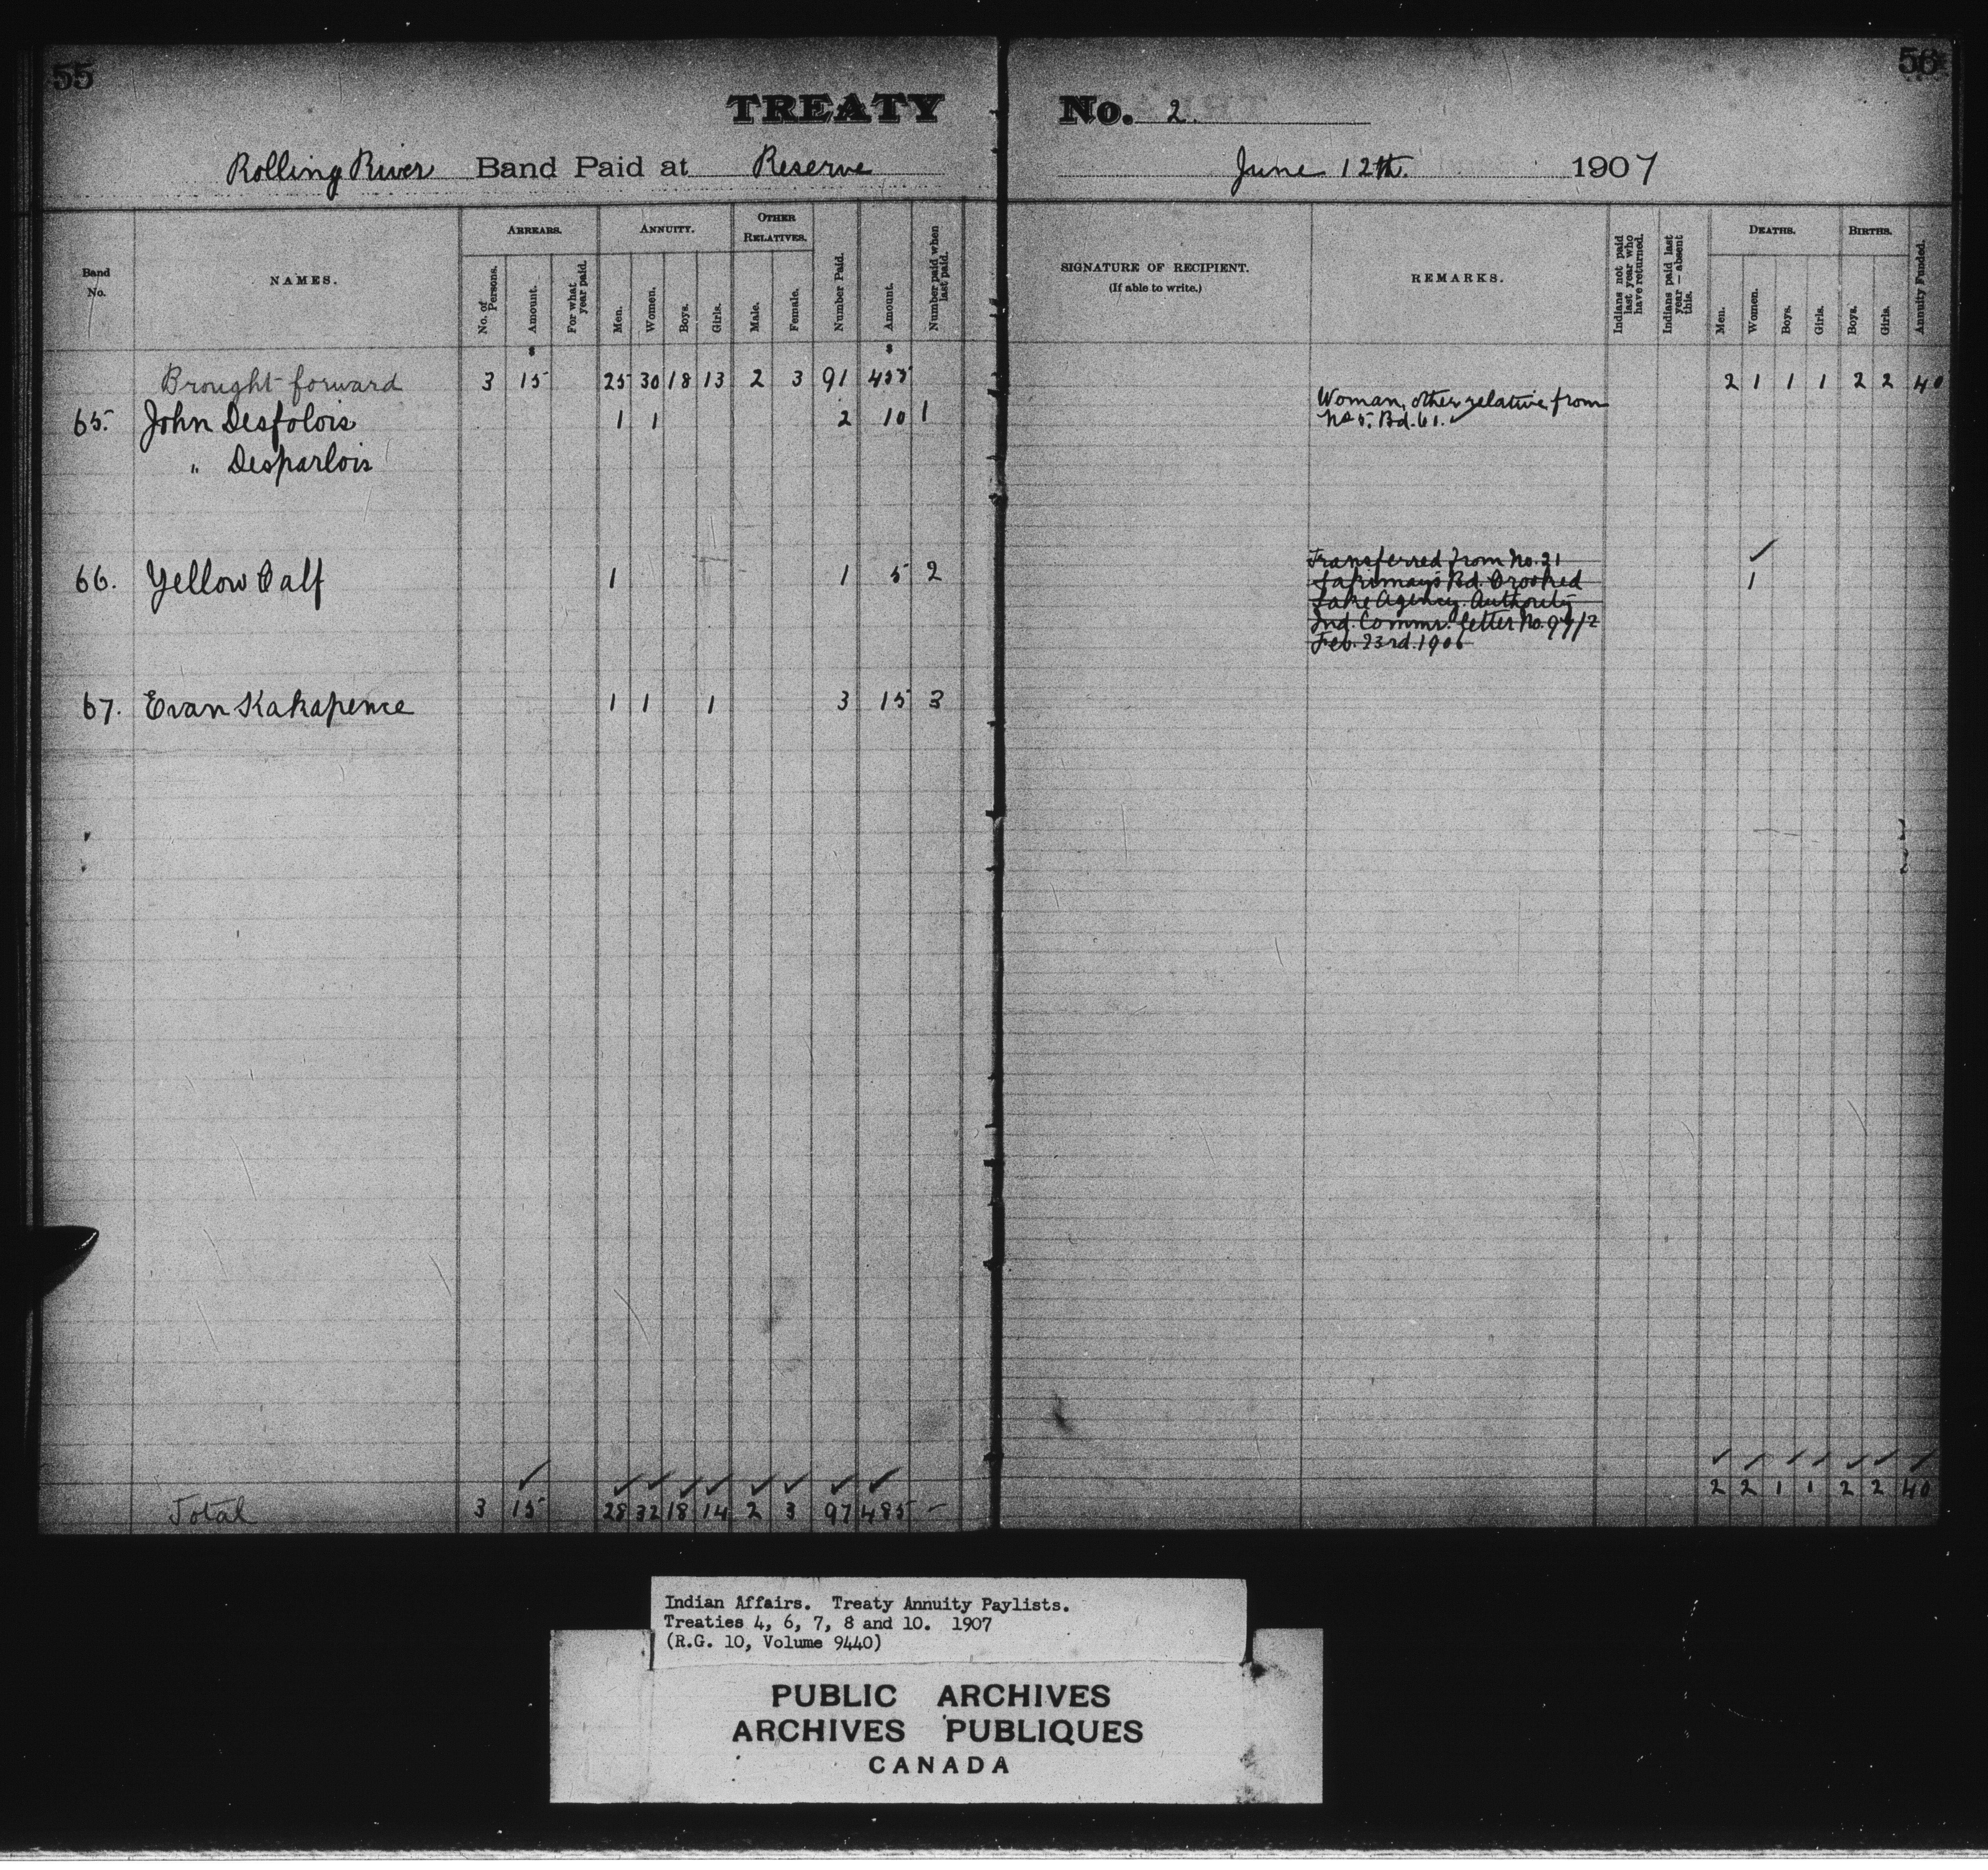 55
56
TREATY No. 2.
Rolling River Band Paid at Reserve June 12th. 1907
Band No.
NAMES.
ARREARS.
No. of Persons.
Amount.
For what year paid.
ANNUITY.
Men.
Women.
Boys.
Girls.
OTHER RELATIVES.
Male.
Female.
Number Paid.
Amount.
Number paid when last paid.
SIGNATURE OF RECIPIENT.
(If able to write.)
REMARKS.
Indians not paid last year who have returned.
Indians paid last year—absent this.
DEATHS.
Men.
Women.
Boys.
Girls.
BIRTHS.
Boys.
Girls.
Annuity Funded.
$ $
Brought forward 3 15 25 30 18 13 2 3 91 455 2 1 1 1 2 2 40
65. John Desfolois 1 1 2 10 1
Woman, other relative, from
No 5. Bd. 61.
" Desparlois
66. Yellow Calf 1 1 5 2 1
Transferred from No. 21
Bd. Crooked
Lake Agency. Authority
Ind. Commr. letter No.
Feb. 23rd. 1906
67. Evan Kakapence 1 1 1 3 15 3
Total 3 15 28 32 18 14 2 3 97 485 - 2 2 1 1 2 2 40
Indian Affairs. Treaty Annuity Paylists.
Treaties 4, 6, 7, 8 and 10. 1907
(R.G. 10, Volume 9440)
PUBLIC ARCHIVES
ARCHIVES PUBLIQUES
CANADA